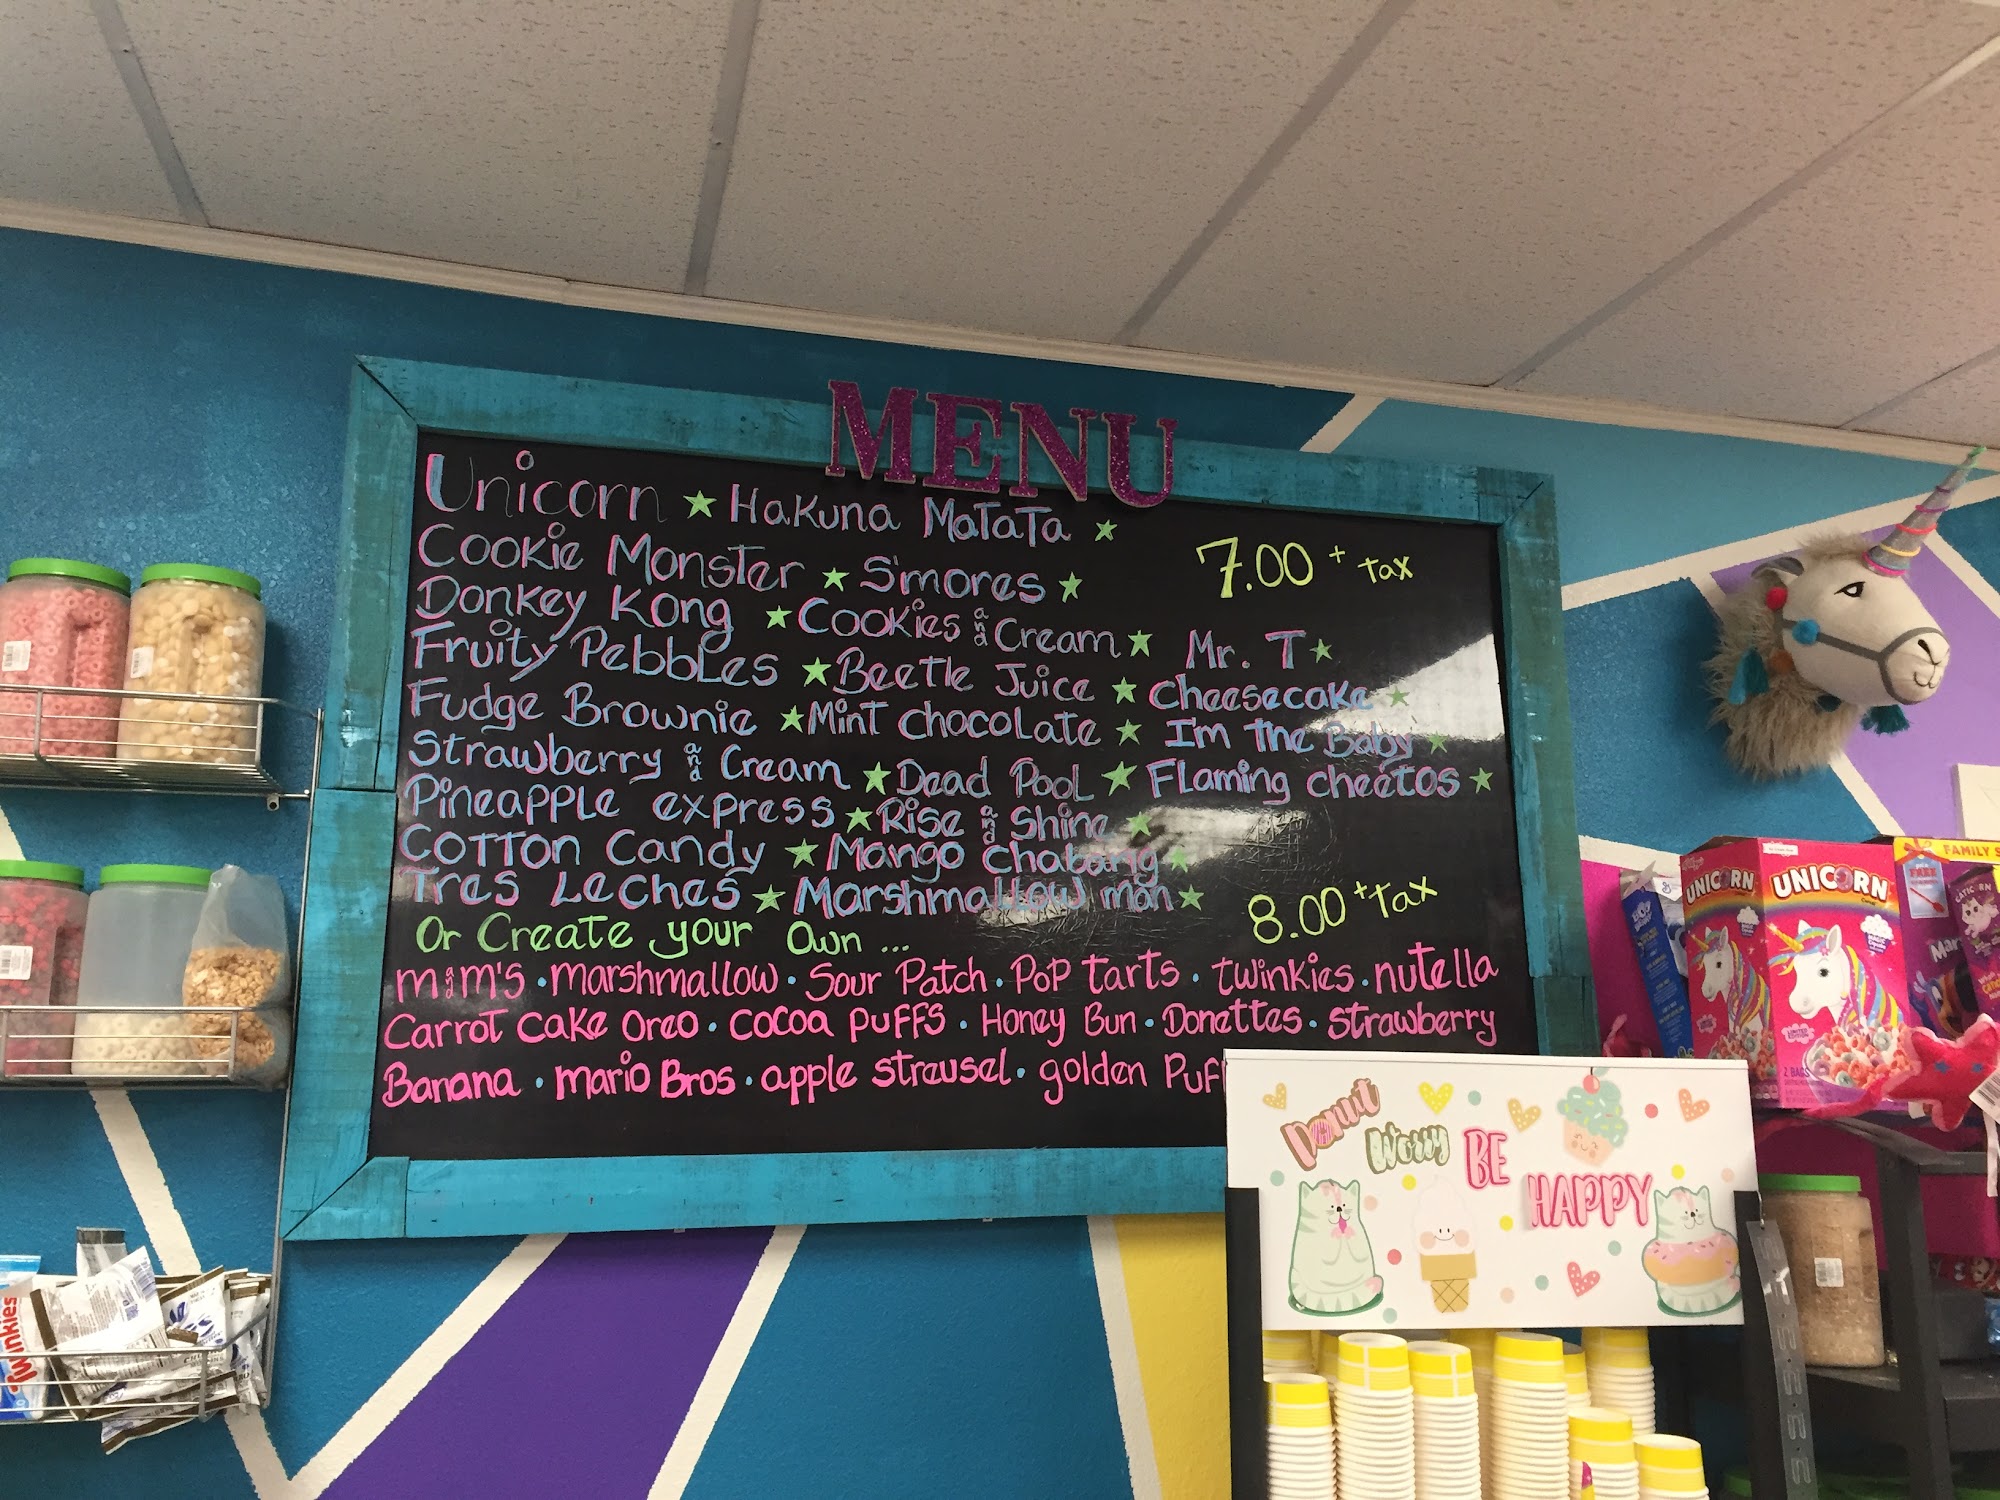 MENU
Unicorn ★ Hakuna Matata ★
7.00 + tax
Cookie Monster ★ S'mores ★
Donkey Kong ★ Cookies and Cream ★ Mr. T ★
Fruity Pebbles ★ Beetle Juice ★ Cheesecake ★
Fudge Brownie ★ Mint chocolate ★ I'm the Baby ★
Strawberry and Cream ★ Dead Pool ★ Flaming cheetos ★
Pineapple express ★ Rise and Shine ★
Cotton Candy ★ Mango chabang ★
Tres Leches ★ Marshmallow man ★
Or Create your Own ...
8.00 + tax
m and m's • marshmallow • Sour Patch • Pop tarts • twinkies • nutella
Carrot cake Oreo • Cocoa Puffs • Honey Bun • Donettes • Strawberry
Banana • mario Bros • apple streusel • golden Puf
Donut Worry BE HAPPY
UNICORN
UNICORN
FAMILY S
FREE
Mar
2 BAGS
Twinkies